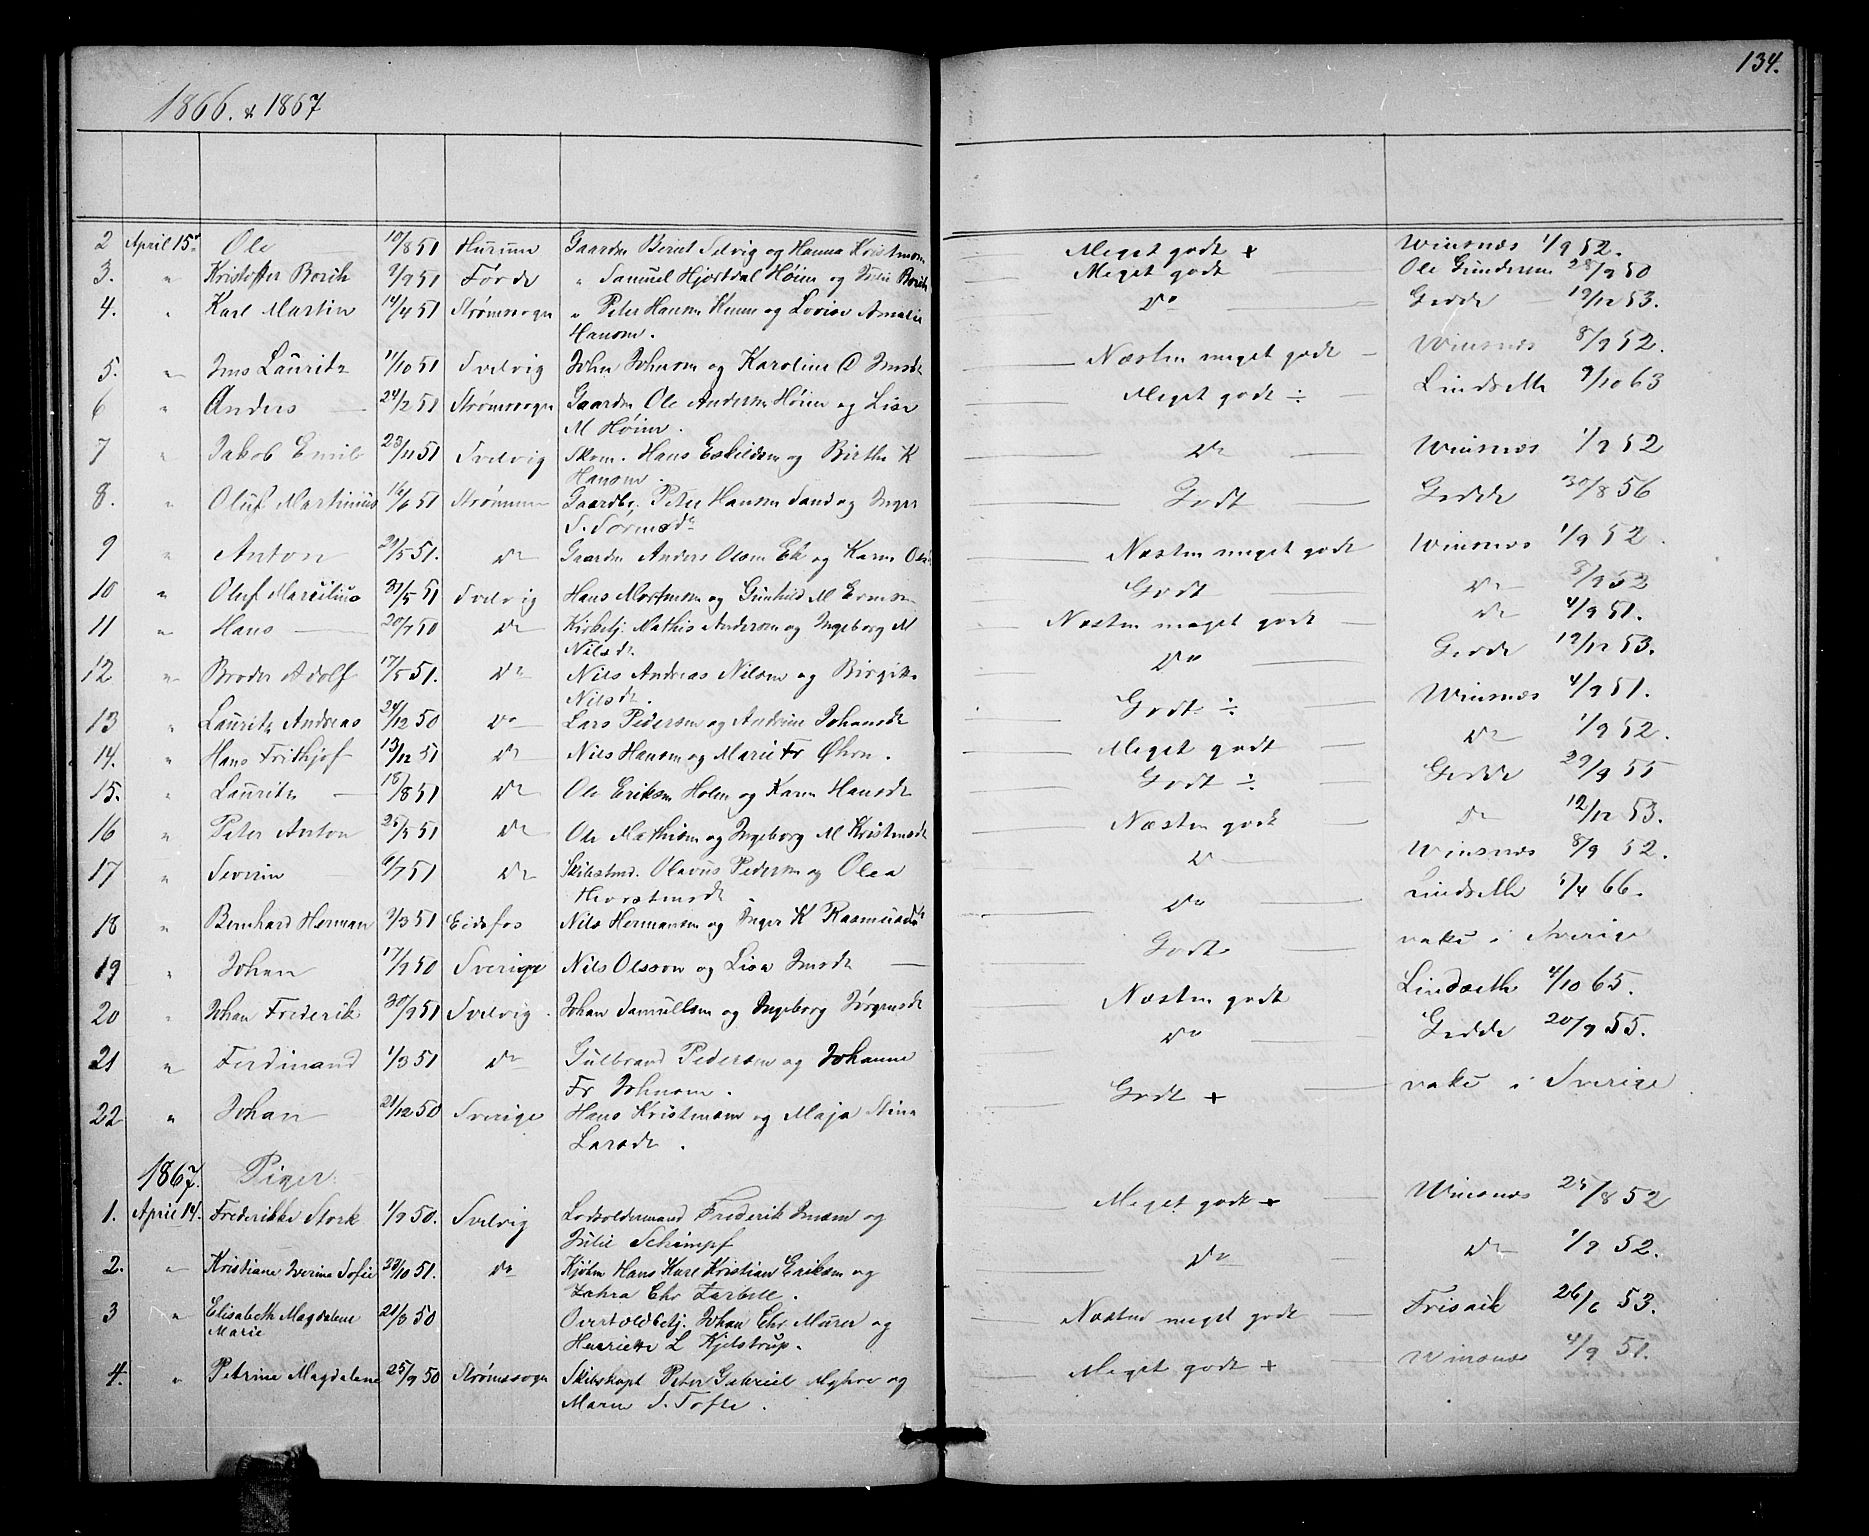 134.
1866. & 1867
2 April 15. Ole 10/8 51 Hurum Gaardm Bernt Selvig og Hanna Kristensen Meget godt + Winsnæs 1/9 52.
3. " Kristoffer Borch 2/9 51 Førde " Samuel Hjortdal Høien og Borch Meget godt Ole Gundersen 28/9 50
4. " Karl Martin 14/4 51 Strømsogn " Peter Hansen og Lovise Amalie Do Gedde 19/12 53.
Hansen.
5. " Jens Lauritz 11/10 51 Svelvig John Johnsen og Karoline C Jensdt Næsten meget godt Winsnæs 8/9 52.
6 " Anders 24/2 51 Strømsogn Gaardm Ole Andersen Høien og Lise Meget godt ÷ Lindseth 9/10 63
M Høien.
7 " Jakob Emil 23/11 51 Svelvig Skom. Hans Eskildsen og Birthe K Do Winsnæs 1/9 52
Hansen.
8. " Oluf Martinius 16/6 51 Strømmen Gaardbr. Peter Hansen Sand og Inger Godt Gedde 30/8 56
S.
9 " Anton 21/5 51. Do Gaardm Anders Olsen Ek og Karen Olsdt Næsten meget godt Winsnæs 1/9 52.
10 " Oluf Marcilius 31/5 51 Svelvig Hans Mortensen og Gunhild M Godt Do 8/9 52
11 " Hans 20/7 50 Do Kirketj. Mathis Andersen og Ingeborg M Næsten meget godt Do 4/9 51.
Nilsdt.
12 " Broder Adolf 17/5 51. Do Nils Andreas Nilsen og Birgitte Do Gedde 19/12 53.
Nilsdt.
13 " Lauritz Andreas 24/12 50 Do Lars Pedersen og Andrine Johansdt Godt ÷ Winsnæs 4/9 51.
14. " Hans Frithjof 13/12 51 Do Nils Hansen og Marie Fr Øhrn. Meget godt Do 1/9 52.
15. " Lauritz 18/8 51 Do Ole Eriksen Holm og Karen Hansdt Godt ÷ Gedde 29/9 55
16 " Peter Anton 25/5 51 Do Ole Mathisen og Ingeborg M Kristensdt Næsten godt Do 12/12 53.
17 " Severin 6/7 51 Do Skibstmd. Olavus Pedersen og Olea Do Winsnæs 8/9 52.
18 " Bernhard Herman 2/3 51 Eidsfos Nils Hermansen og Inger K Rasmusdt Do Lindseth 5/4 66.
19 " Johan 17/9 50 Sverige Nils Olsson og Lisa Jensdt Godt vakc i Sverige
20 " Johan Frederik 30/9 51 Svelvig. Johan Samuelsen og Ingeborg Jørgensdt Næsten godt Lindseth 4/10 65.
21 " Ferdinand 1/3 51 Do Gulbrand Pedersen og Johanne Do Gedde 20/9 55.
Fr Johnsen.
22 " Johan 21/12 50 Sverige Hans Kristensen og Maja Stina Godt + vakc i Sverige
Larsdt.
1867. Piger
1. April 14. Frederikke Stork 1/9 50. Svelvig Lodsoldermand Frederik Jensen og Meget godt + Winsnæs 25/8 52
Julie Schimpf
2. " Kristiane Iverine Sofie 28/10 51. Do Kjøbm Hans Karl Kristian Eriksen og Do Do 1/9 52.
Zahra Chr Zarbell.
3 " Elisabeth Magdalene 21/8 50 Overtoldbetj. Johan Chr Murer og Næsten meget godt Frisak 26/6 53.
Marie Henriette L Kjelstrup.
4. " Petrine Magdalene 25/9 50 Strømsogn Skibskapt Peter Gabriel Myhre og Meget godt + Winsnæs 4/9 51.
Maren S. Tofte.